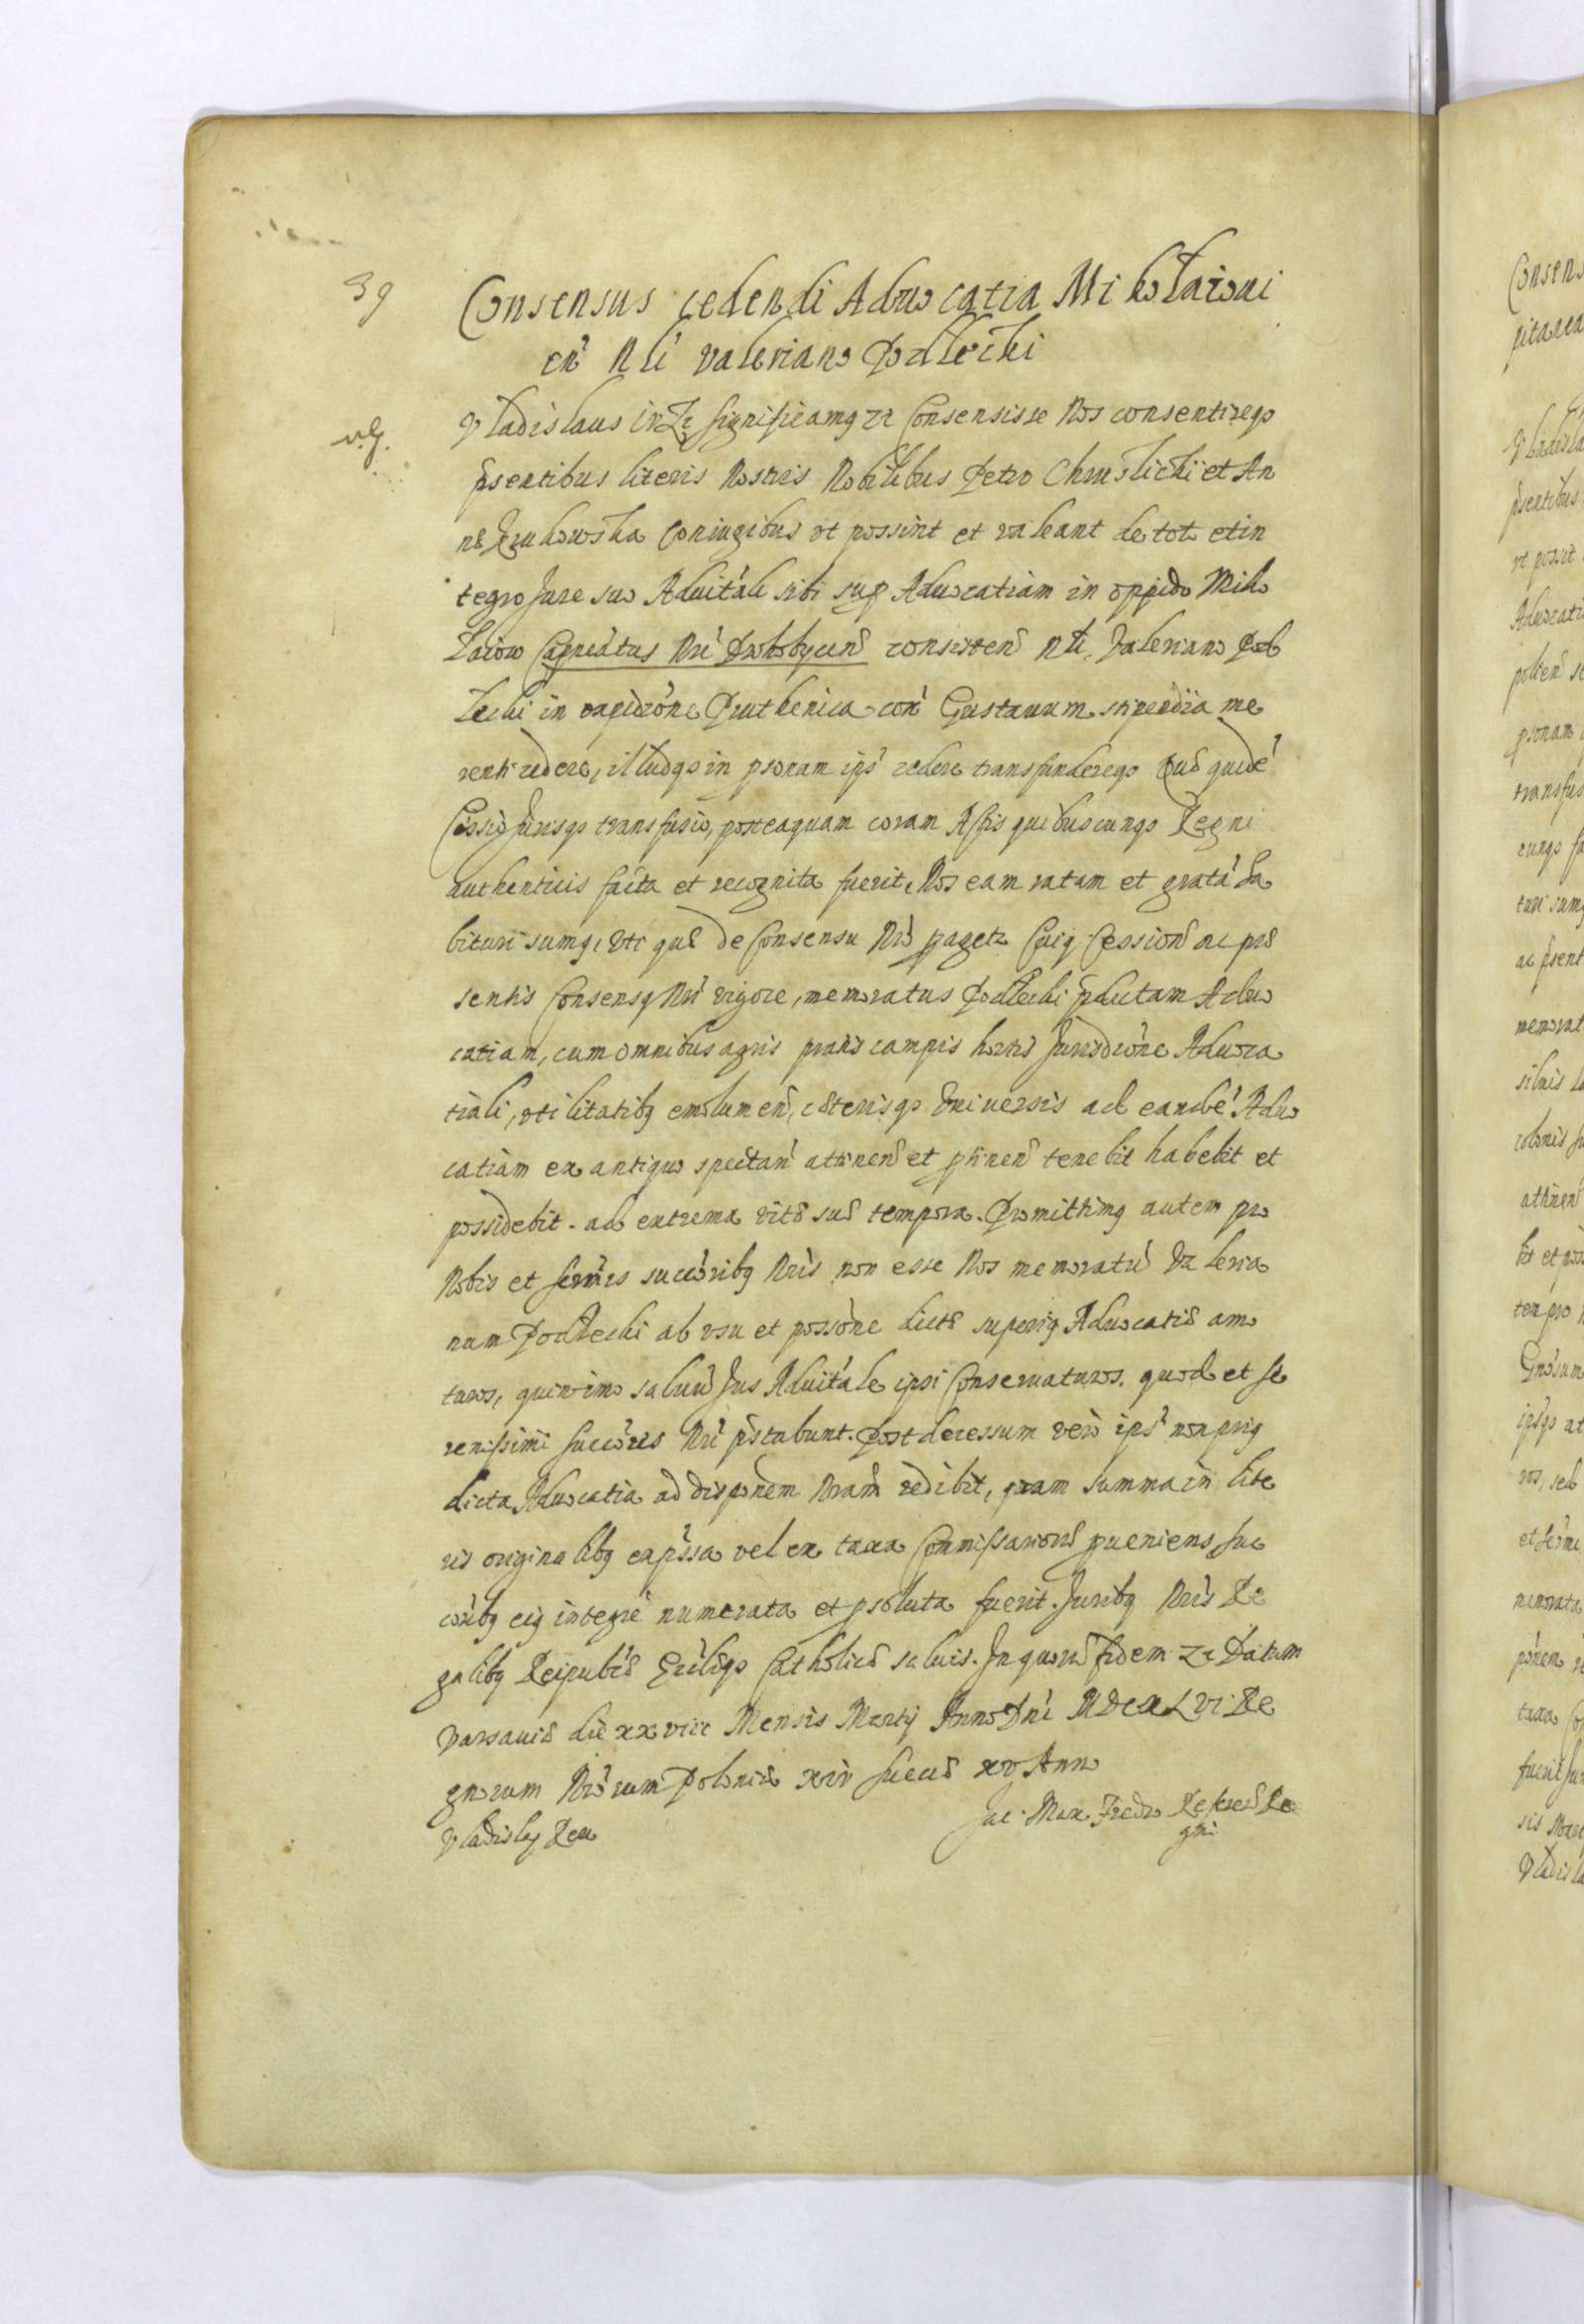 39
Consensus cedendi Aduocatia Mikołaioui
en̄ Nli Valeriano Podlecki
Vladislaus IV Zc significamq zc Consensisse Nos consentireqs
pſentibus literis Nostris Nobilibus Petro Chmelicki et An
næ coniugibus vt possint et valeant de toto et in
tegro Jure suo Aduitali sibi sup Aduocatiam in oppido Miko
łaiow Capneatus Nri Drohobycen consisten Nli Valeriano Pod
lecki in expedeone Pruthenica con Gustauum stipendia me
renti cedere, illudqs in psonam ips cedere transfundereqs Quæ quidē
Cessio Jurisqs transfusio, posteaquam coram Actis quibuscunqs Regni
authenticis facta et recognita fuerit, Nos eam ratam et gratā ha
bituri sumq, vti quæ de Consensu Nro pagetr Cuiq Cessionē ac præ
sentis Consensq Nri vigore, memoratus Podlecki pdictam Aduo
catiam, cum omnibus agris pratis campis hortis Jurisdicōne Aduoca
tiali, vtilitatibq emolumen, cæterisqs Vniuersis ad eandē Aduo
catiam ex antiquo spectan attinen et ptinen tenebit habebit et
possidebit. ad extrema vitæ suæ tempora. Promittimq autem pro
Nobis et Sermis succōribq Nris non esse Nos memoratū Valeria
num Podlecki ab vsu et possōne dictæ superiq Aduocatiæ amo
turos, quinimo saluū Jus Aduitale ipsi Conseruaturos. quod et Se
renissimi succōres Nri pstabunt. Post decessum vero ips non priq
dicta Aduocatia ad disponem Nram redibit, quam summa in lite
ris originalibq expssa vel ex taxa Commissariorū pueniens suc
corībq eiq integre numerata et psoluta fuerit. Juribq Nris Re
galibq Reipublicæ Ecclæqs Catholicæ saluis. In quorū fidem zc Datum
Varsauiæ die xxviii Mensis Martij Anno Dni MDCXLVI Re
gnorum Nrorum Poloniæ xiv Sueciæ xv Anno
Vladislq Rex
Jac. Max. Fredro Referen Re
gni